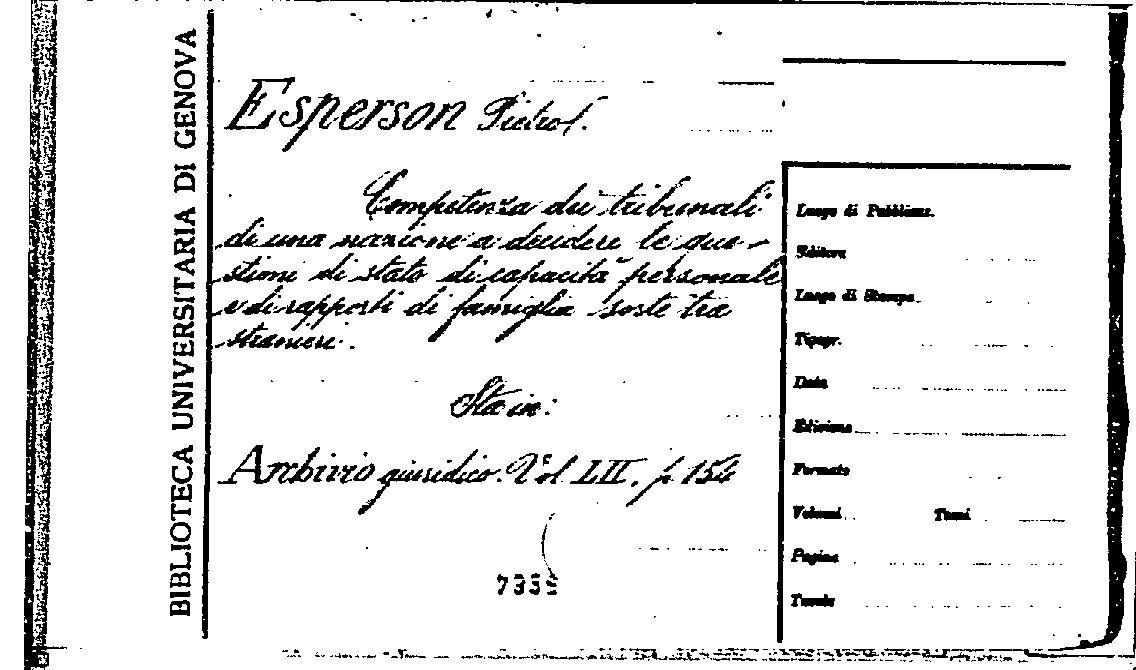 BIBLIOTECA UNIVERSITARIA DI GENOVA
Esperson Pietro.
Competenza dei tribunali
di una nazione a decidere le que-
stioni di stato di capacità personale
e di rapporti di famiglia sorte tra
stranieri.
Sta in:
Archivio giuridico. Vol LII. p 154
7359
Luogo di Pubblicaz.
Editore
Luogo di Stampa
Tipogr.
Data
Edizione
Formato
Volumi Tomi
Pagine
Tavole